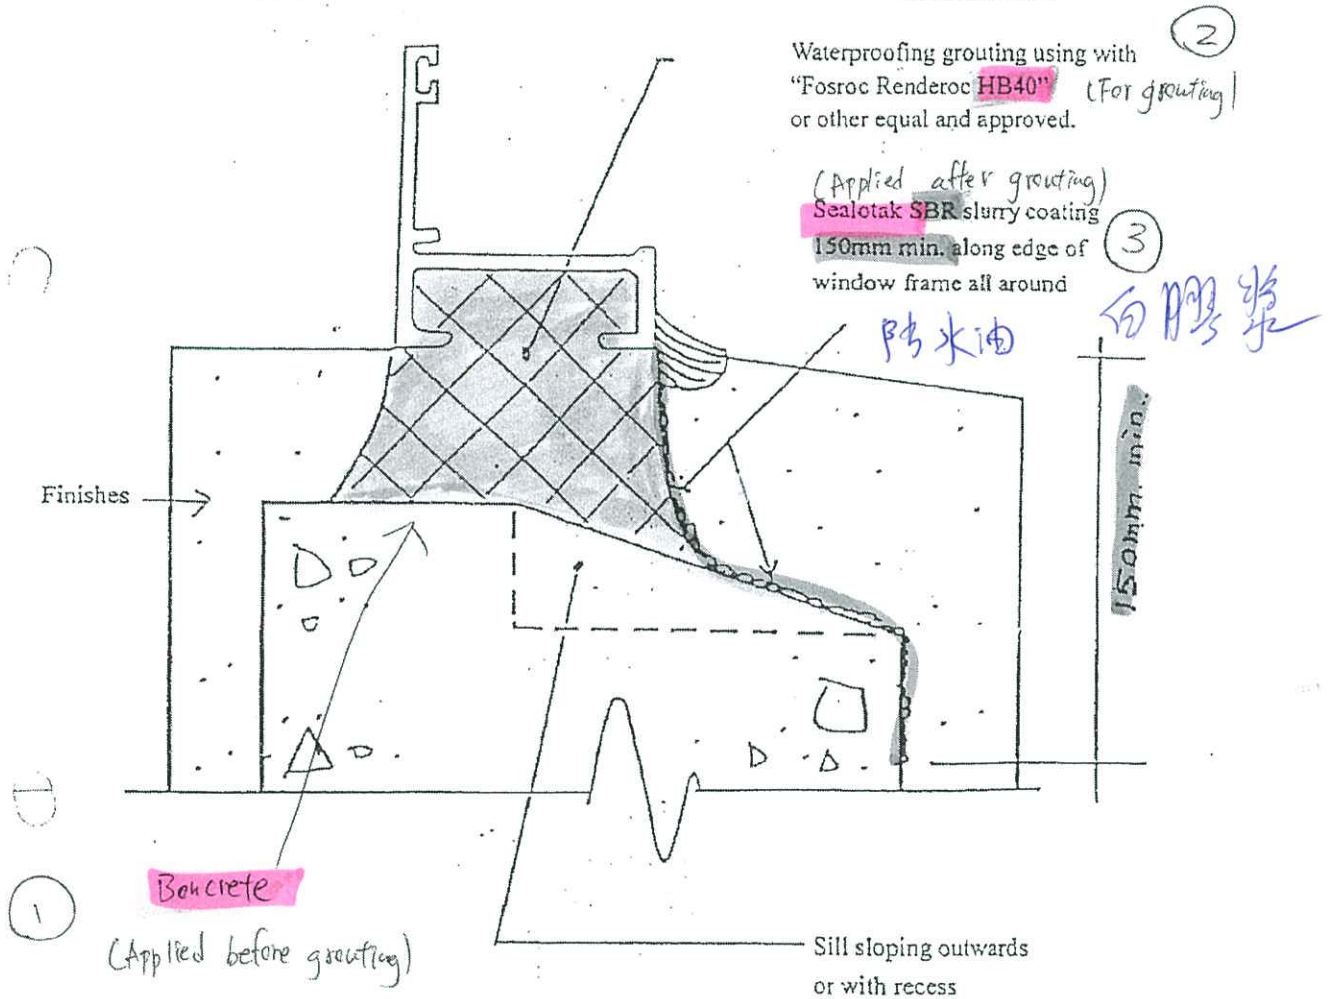 ②
Waterproofing grouting using with
“Fosroc Renderoc HB40” (For grouting)
or other equal and approved.
(Applied after grouting)
Sealotak SBR slurry coating
150mm min. along edge of
window frame all around
③
防水油
白膠漿
150mm. min..
Finishes
Boncrete
①
(Applied before grouting)
Sill sloping outwards
or with recess